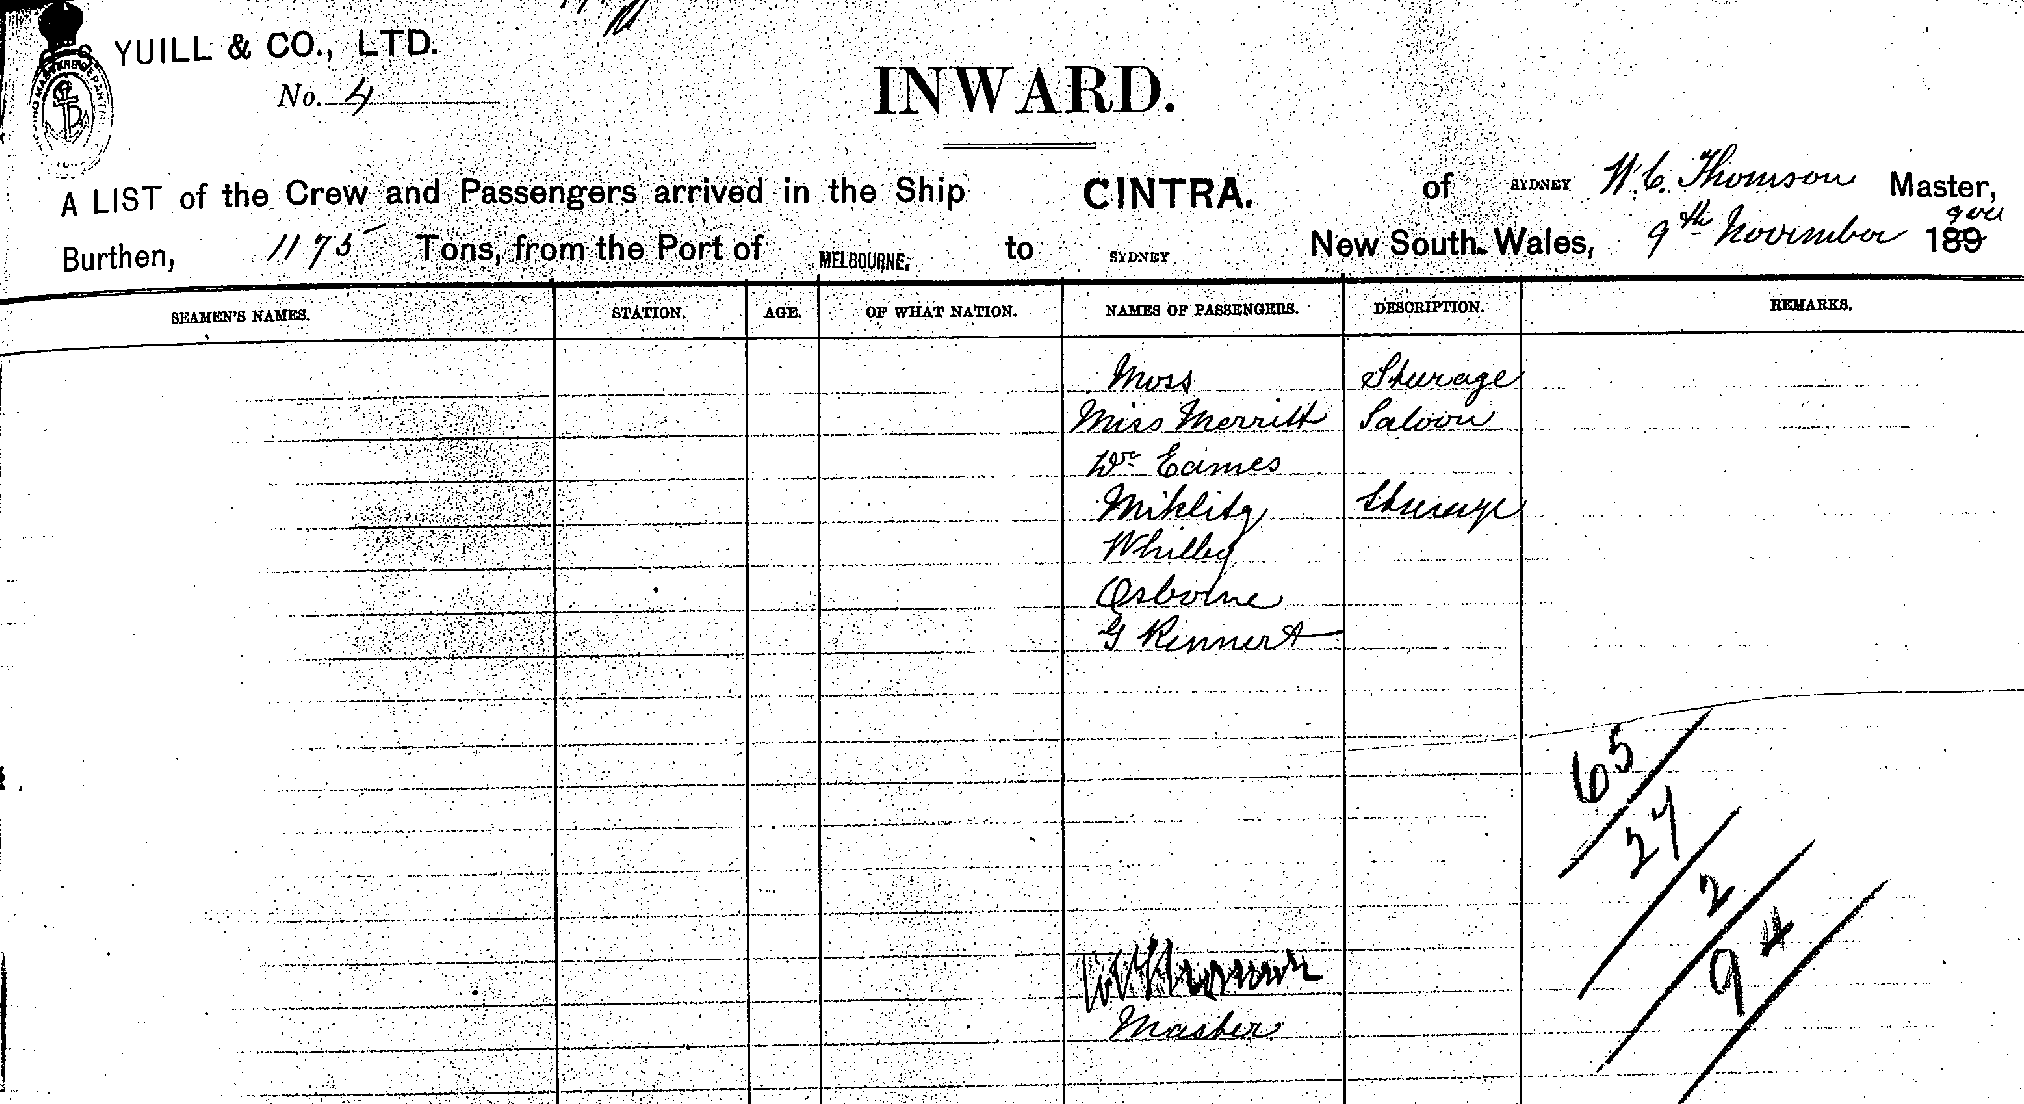 YUILL & CO., LTD.
No. 4
INWARD.
A LIST of the Crew and Passengers arrived in the Ship CINTRA. of SYDNEY W. C. Thomson Master,
Burthen, 1175 Tons, from the Port of MELBOURNE, to SYDNEY New South Wales, 9th November 189
SEAMEN'S NAMES. STATION. AGE. OF WHAT NATION. NAMES OF PASSENGERS. DESCRIPTION. REMARKS.
Moss Steerage
Miss Merritt Saloon
Dr Eames
Miklitz Steerage
Whilley
Osborne
G Rennert
65
27
2
94
Master